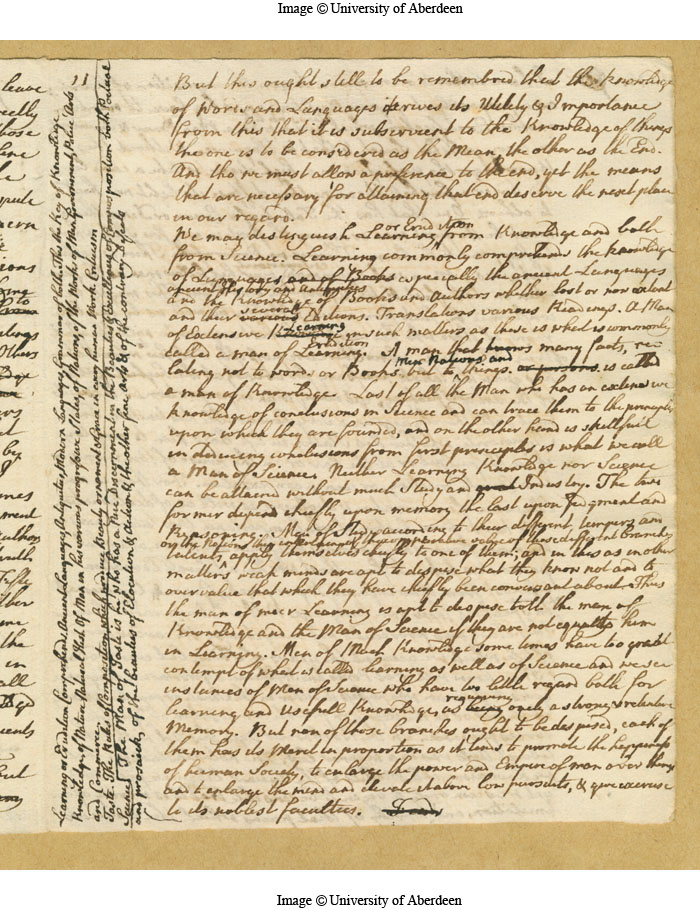 Image © University of Aberdeen
11
But this ought still to be remembred that the Knowledge
of Words and Languages derives its Utility & Importance
from this that it is subservient to the Knowledge of things
the one is to be considered as the Mean, the other as the End.
And tho we must allow a preference to the end, yet the means
that are necessary for attaining that end deserve the next place
in our regard.
or Erudition
We may distinguish Learning from Knowledge and both
from Science. Learning commonly comprehends the knowledge
of Languages and of Books especially the ancient Languages
ancient History and Antiquities
and the Knowledge of Books and Authors whether lost or now extant
several
and their various Editions. Translations various Readings. A Man
Learning
of Extensive in such matters as these is what is commonly
Erudition
called a man of Learning. A man that knows many facts, re
Men Nations, and
lating not to words or Books, but to things or persons is called
a man of Knowledge. Last of all the Man who has an extensive
Knowledge of conclusions in Science and can trace them to the principles
upon which they are founded, and on the other hand is skillfull
in deducing conclusions from first principles is what we call
a Man of Science. Neither Learning Knowledge nor Science
can be attained without much Study and Industry. The two
former depend chiefly upon memory the last upon Judgment and
Reasoning. Men of Study according to their different tempers and
or the Notions they have formed of the comparative value of these different branches
talents apply themselves chiefly to one of them; and in this as in other
matters weak minds are apt to despise what they know not and to
over value that which they have chiefly been conversant about. Thus
the man of meer Learning is apt to despise both the man of
Knowledge and the Man of Science if they are not equal to him
in Learning. Men of Much Knowledge some times have too great
contempt of what is called learning as well as of Science and we see
instances of Men of Science who have too little regard both for
requiring
learning and Usefull Knowledge, as being only a strong & retentive
Memory. But non of those branches ought to be despised, each of
them has its Merit in proportion as it tends to promote the happiness
of human Society, to enlarge the power and Empire of man over things
and to enlarge the mind and elevate it above low pursuits, & give exercise
to its noblest faculties.
Learning or Erudition Comprehends, Ancient Languages, Antiquities, Modern Languages, Grammar of both. The the Key of Knowledge
Knowledge, of Nature, Natural Hist. Of Man in his various progressive States, of Nations, of the Works of Men, Government, Police Arts
and Commerce.
Taste. The Rules of Composition which produce Beauty ornament & force in any human Work. Criticism
Science The Man of Taste is he who has a nice Discernment in the Beauties & Excellencies of Composition both Poetical
and prosaick, of the beauties of Elocution & Action & the other fine arts & of the contrary Defects
leave
those
Others
by
the
in
all
but
Image © University of Aberdeen